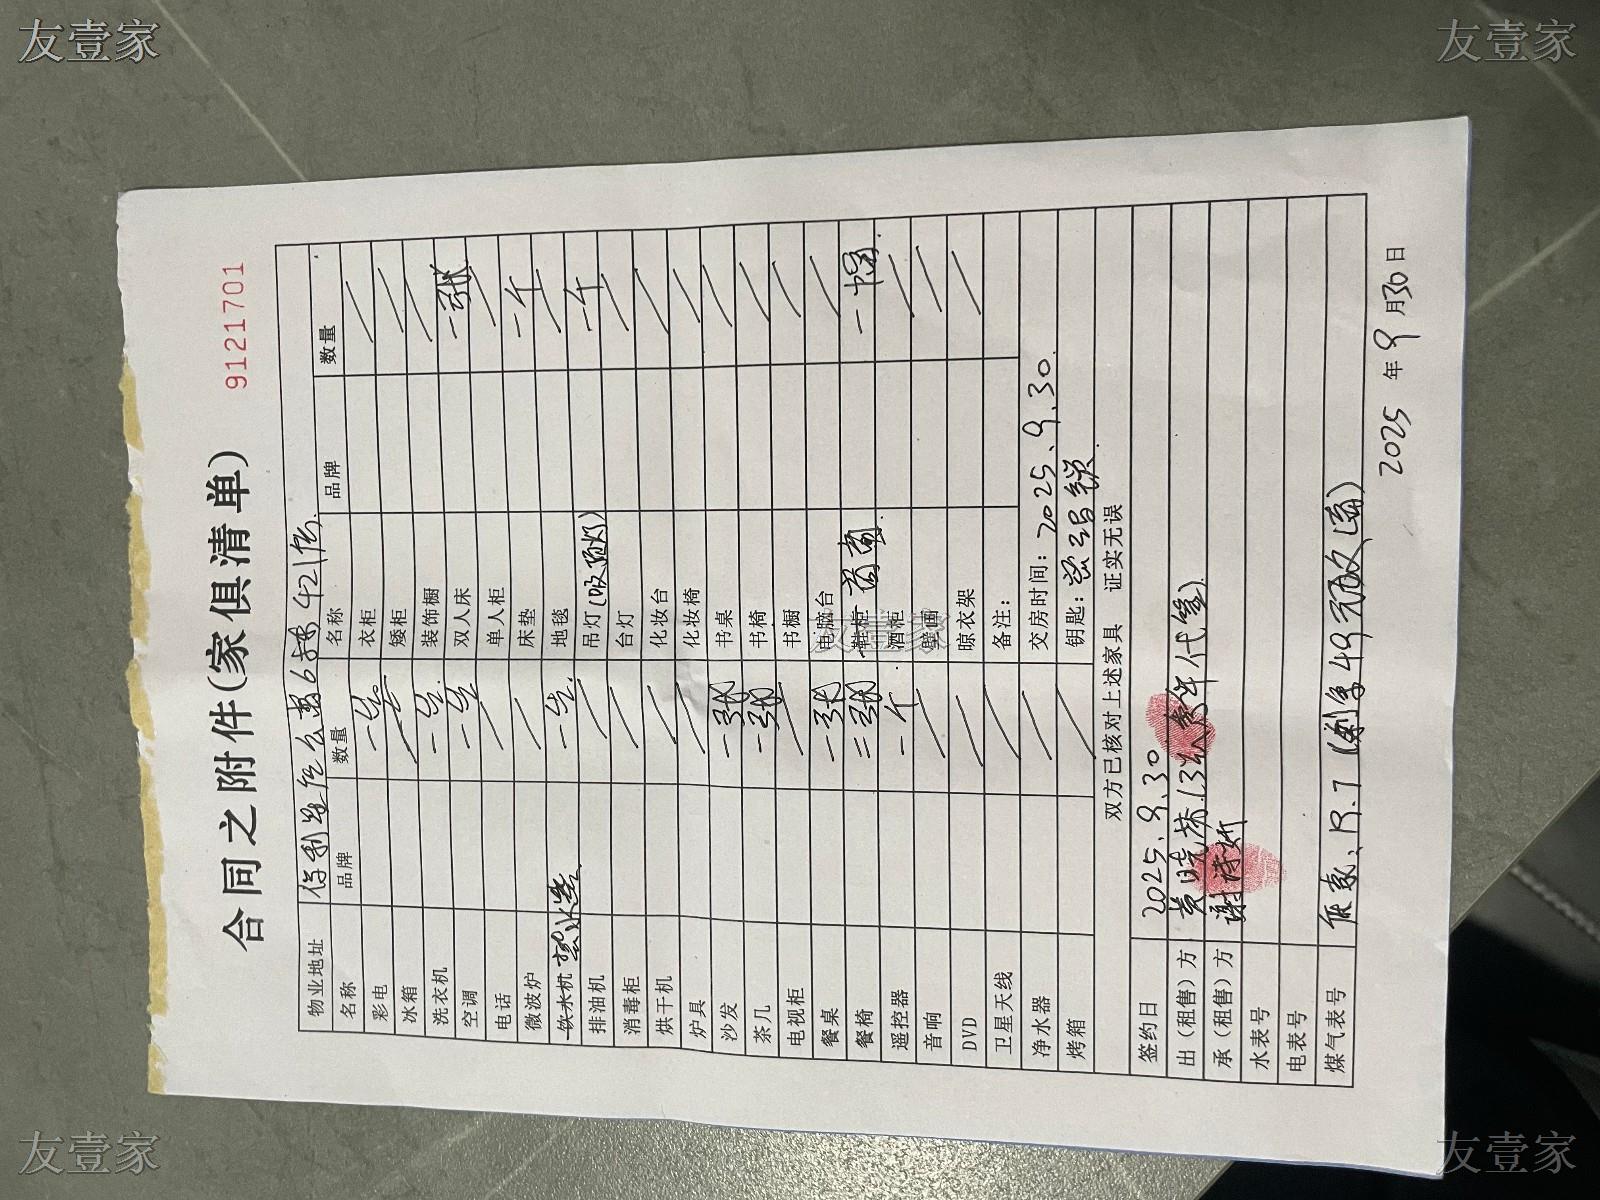 友壹家
友壹家
合同之附件(家俱清单)
9121701
物业地址 保利 6栋 421房.
名称 品牌 数量 名称 品牌 数量
彩电 一台 衣柜 /
冰箱 一台 矮柜 /
洗衣机 一台. 装饰橱 /
空调 一台 双人床 一张
电话 / 单人柜 /
微波炉 / 床垫 一个
饮水机 热水器. 一台. 地毯 /
排油机 / 吊灯(吸顶灯) 一个
消毒柜 / 台灯 /
烘干机 / 化妆台 /
炉具 / 化妆椅 /
沙发 一张 书桌 /
茶几 一张 书椅 /
电视柜 / 书橱 /
餐桌 一张 电脑台 /
餐椅 二张 鞋柜 窗帘. 一幅.
遥控器 一个. 酒柜 /
音响 / 壁画 /
DVD / 晾衣架 /
卫星天线 / 备注:
净水器 / 交房时间: 2025.9.30.
烤箱 / 钥匙: 密码锁.
双方已核对上述家具 证实无误
签约日 2025.9.30
出(租售)方 黄晓 代签).
承(租售)方 谢诗妍
水表号
电表号
煤气表号 49元
2025 年 9 月 30 日
友壹家
友壹家
友壹家